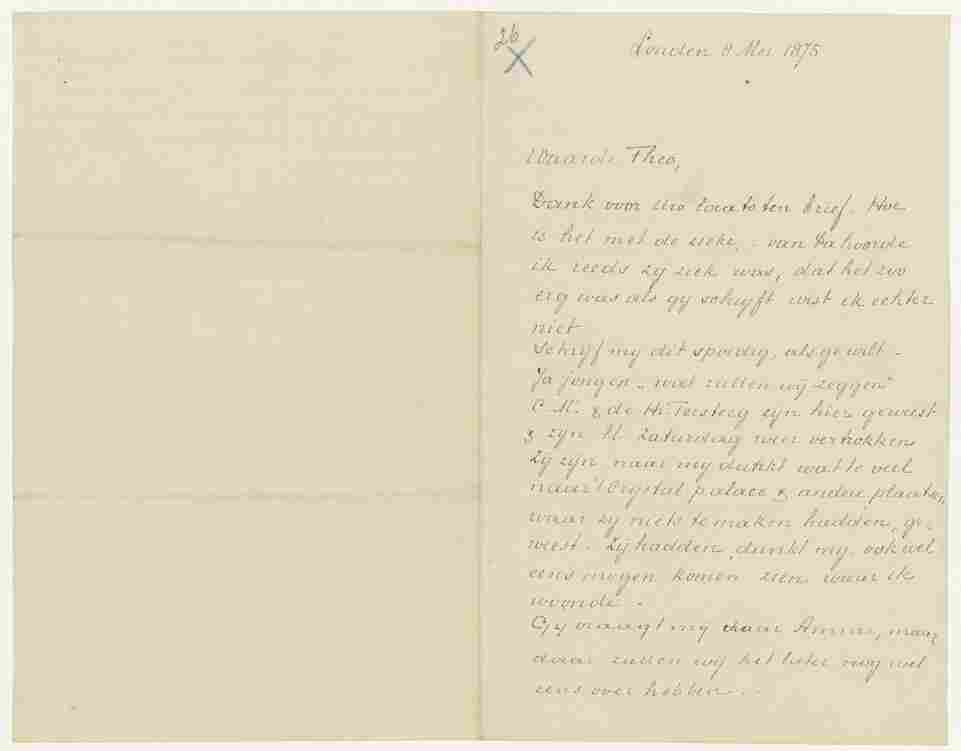 26
Londen 8 Mei 1875
Waarde Theo,
Dank voor uw laatsten brief. Hoe
is het met de zieke, - van Pa hoorde
ik reeds zy ziek was, dat het zoo
erg was als gy schryft wist ik echter
niet
Schryf my dit spoedig, als ge wilt -
Ja jongen „wat zullen wij zeggen"
C.M. & de Hr Tersteeg zyn hier geweest
& zyn ll. Zaturdag weer vertrokken
Zy zyn naar my dunkt wat te veel
naar 't Crystal palace & andere plaatsen,
waar zy niets te maken hadden, ge-
weest. Zij hadden, dunkt my, ook wel
eens mogen komen zien waar ik
woonde.
Gy vraagt my naar Anna, maar
daar zullen wij het later nog wel
eens over hebben. -